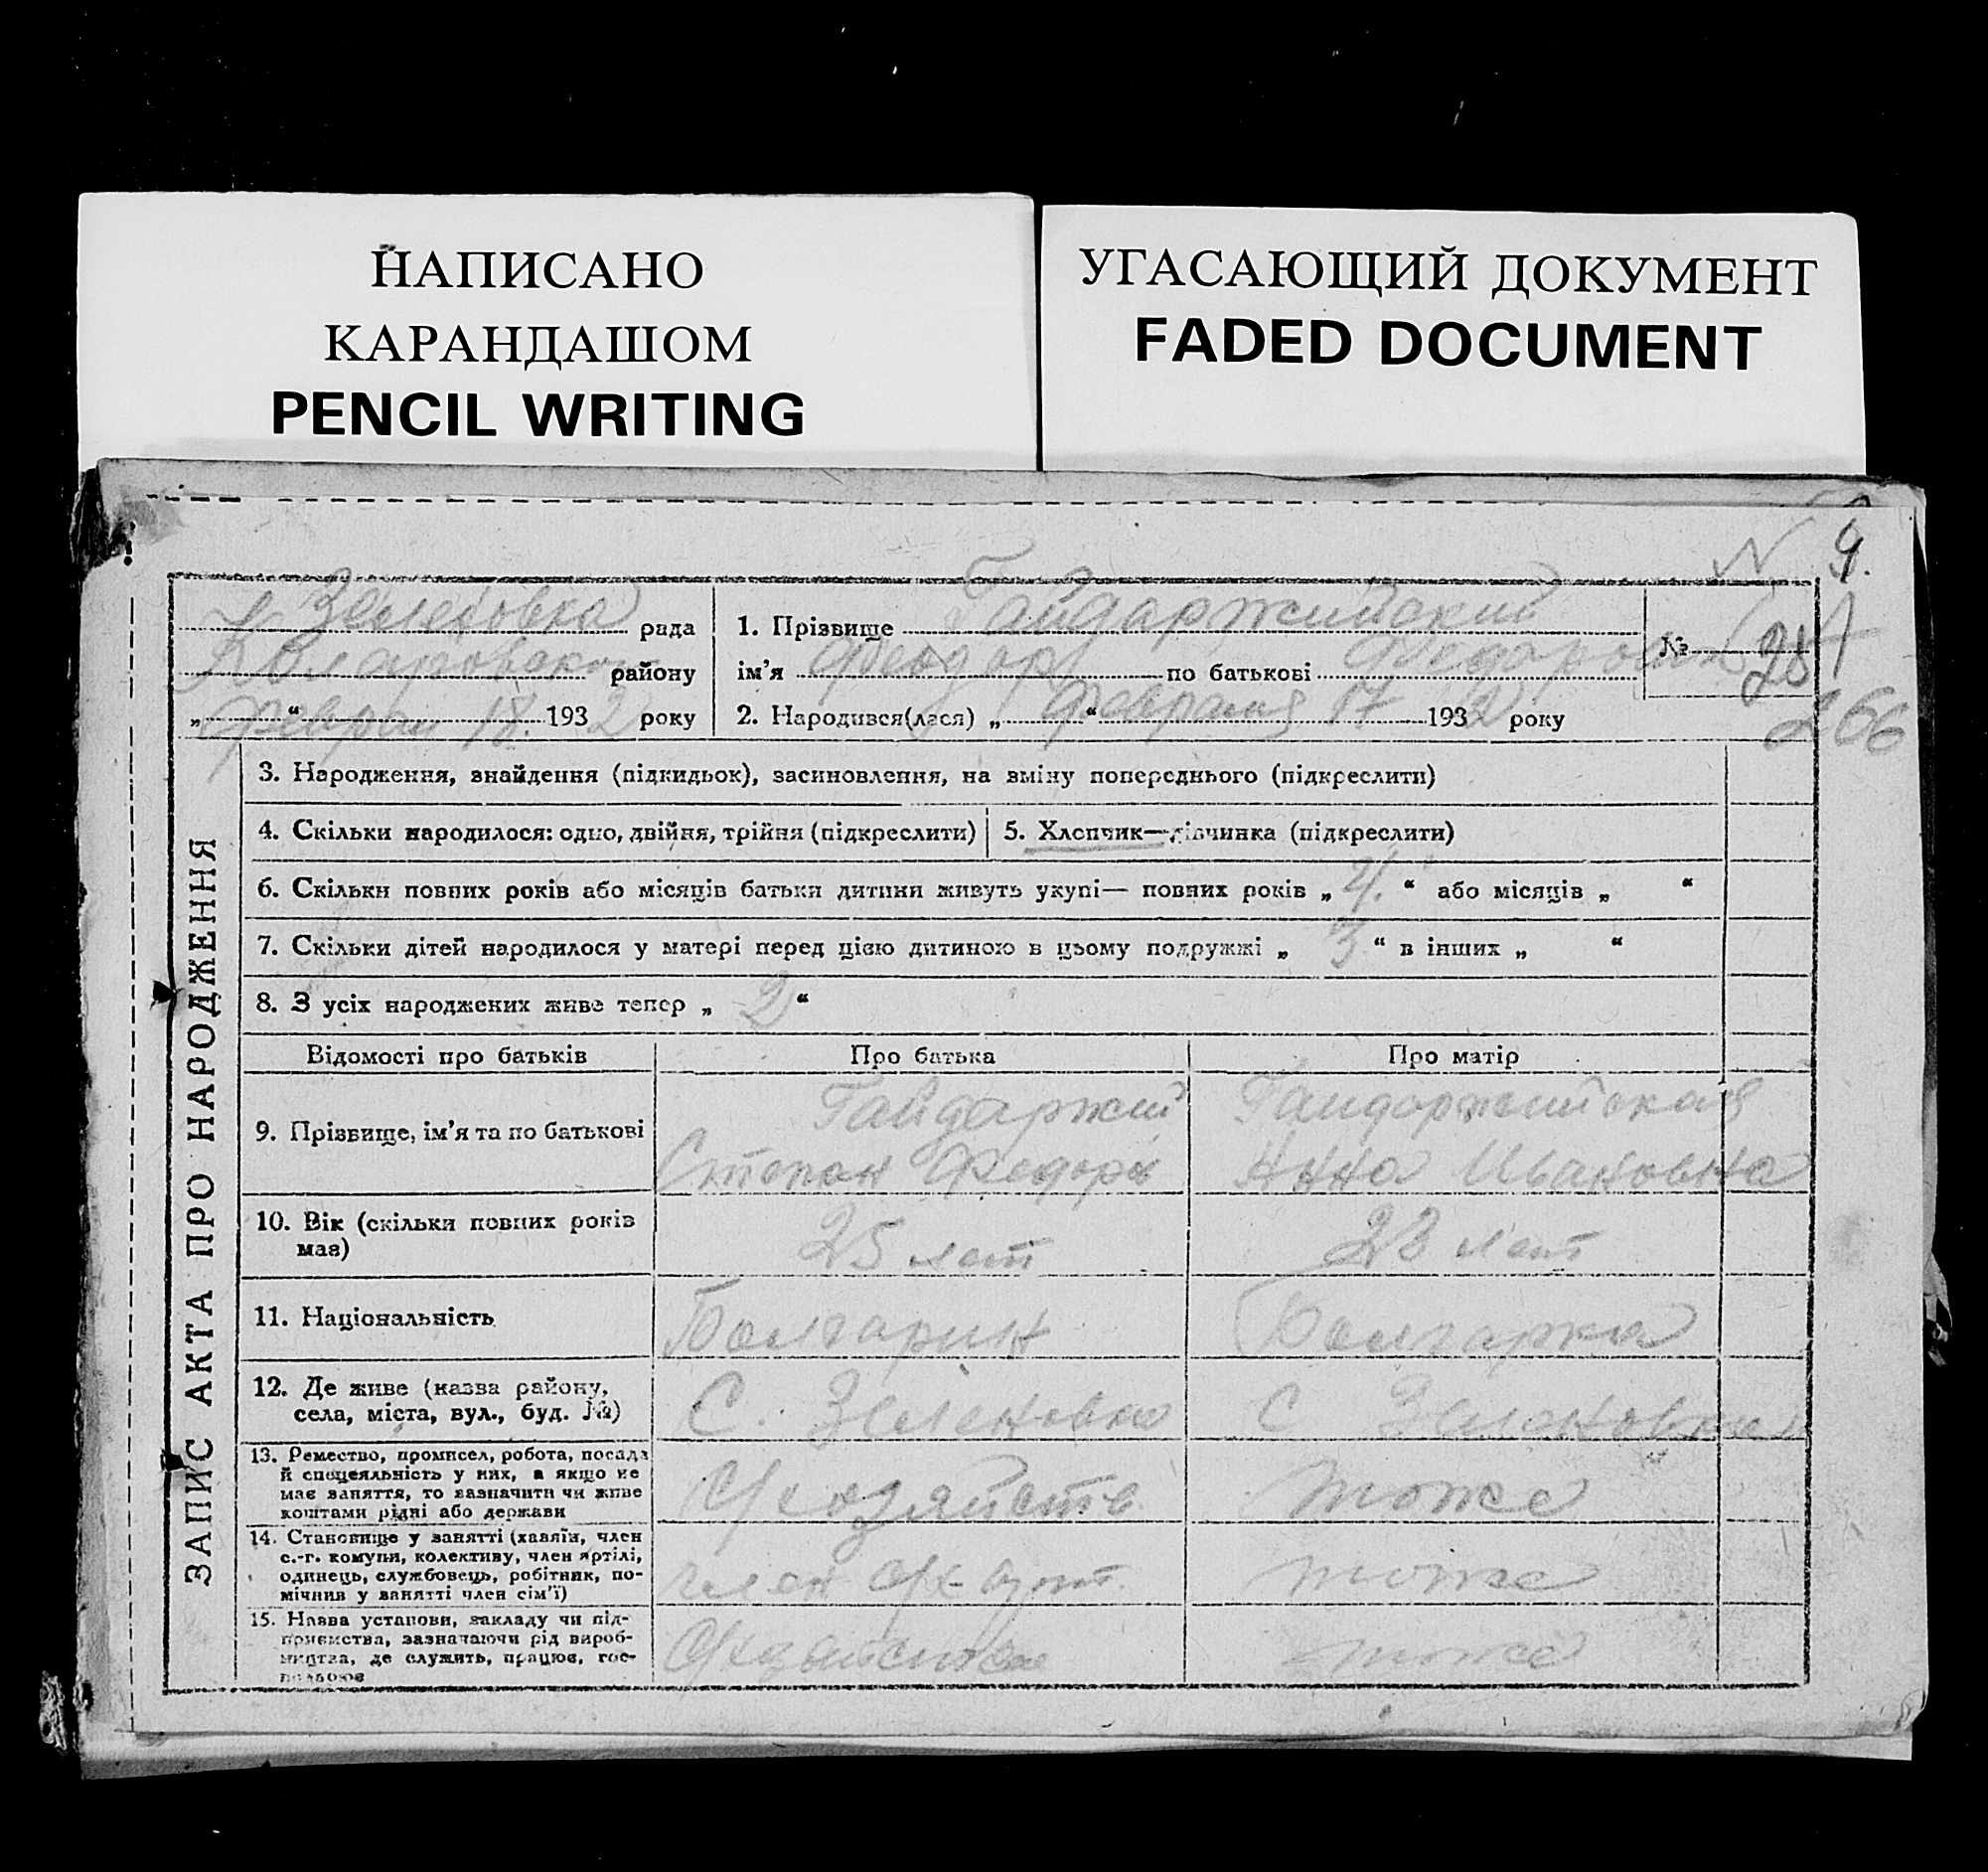 НАПИСАНО
КАРАНДАШОМ
PENCIL WRITING
УГАСАЮЩИЙ ДОКУМЕНТ
FADED DOCUMENT
N 9.
ЗАПИС АКТА ПРО НАРОДЖЕННЯ
Зеленовка рада
Коларовском району
„ “ Феврал 18. 1932 року
1. Прізвище Гайдаржийский
ім'я Феодор по батькові
№ 28
266
2. Народився(лася) „ “ Февраля 17 1932 року
3. Народження, знайдення (підкидьок), засиновлення, на зміну попереднього (підкреслити)
4. Скільки народилося: одно, двійня, трійня (підкреслити)
5. Хлопчик—дівчинка (підкреслити)
6. Скільки повних років або місяців батьки дитини живуть укупі— повних років „ 4. “ або місяців „ “
7. Скільки дітей народилося у матері перед цією дитиною в цьому подружжі „ 3 “ в інших „ “
8. З усіх народжених живе тепер „ 2 “
Відомості про батьків Про батька Про матір
9. Прізвище, ім'я та по батькові
Гайдаржий
Степан Федоров
Гайдоржийская
Анна Ивановна
10. Вік (скільки повних років
має)
25 лет
23 лет
11. Національність
Болгарин
Болгарка
12. Де живе (назва району,
села, міста, вул., буд. №)
С. Зеленовка
С Зеленовка
13. Ремество, промисел, робота, посада
й спецеяльність у них, а якщо не
має заняття, то зазначити чи живе
коштами рідні або держави
тоже
14. Становище у занятті (хазяїн, член
с.-г. комуни, колективу, член артілі,
одинець, службовець, робітник, по-
мічник у занятті член сім'ї)
член
тоже
15. Назва установи, закладу чи під-
приємства, зазначаючи рід вироб-
ництва, де служить, працює, гос-
подарює
тоже